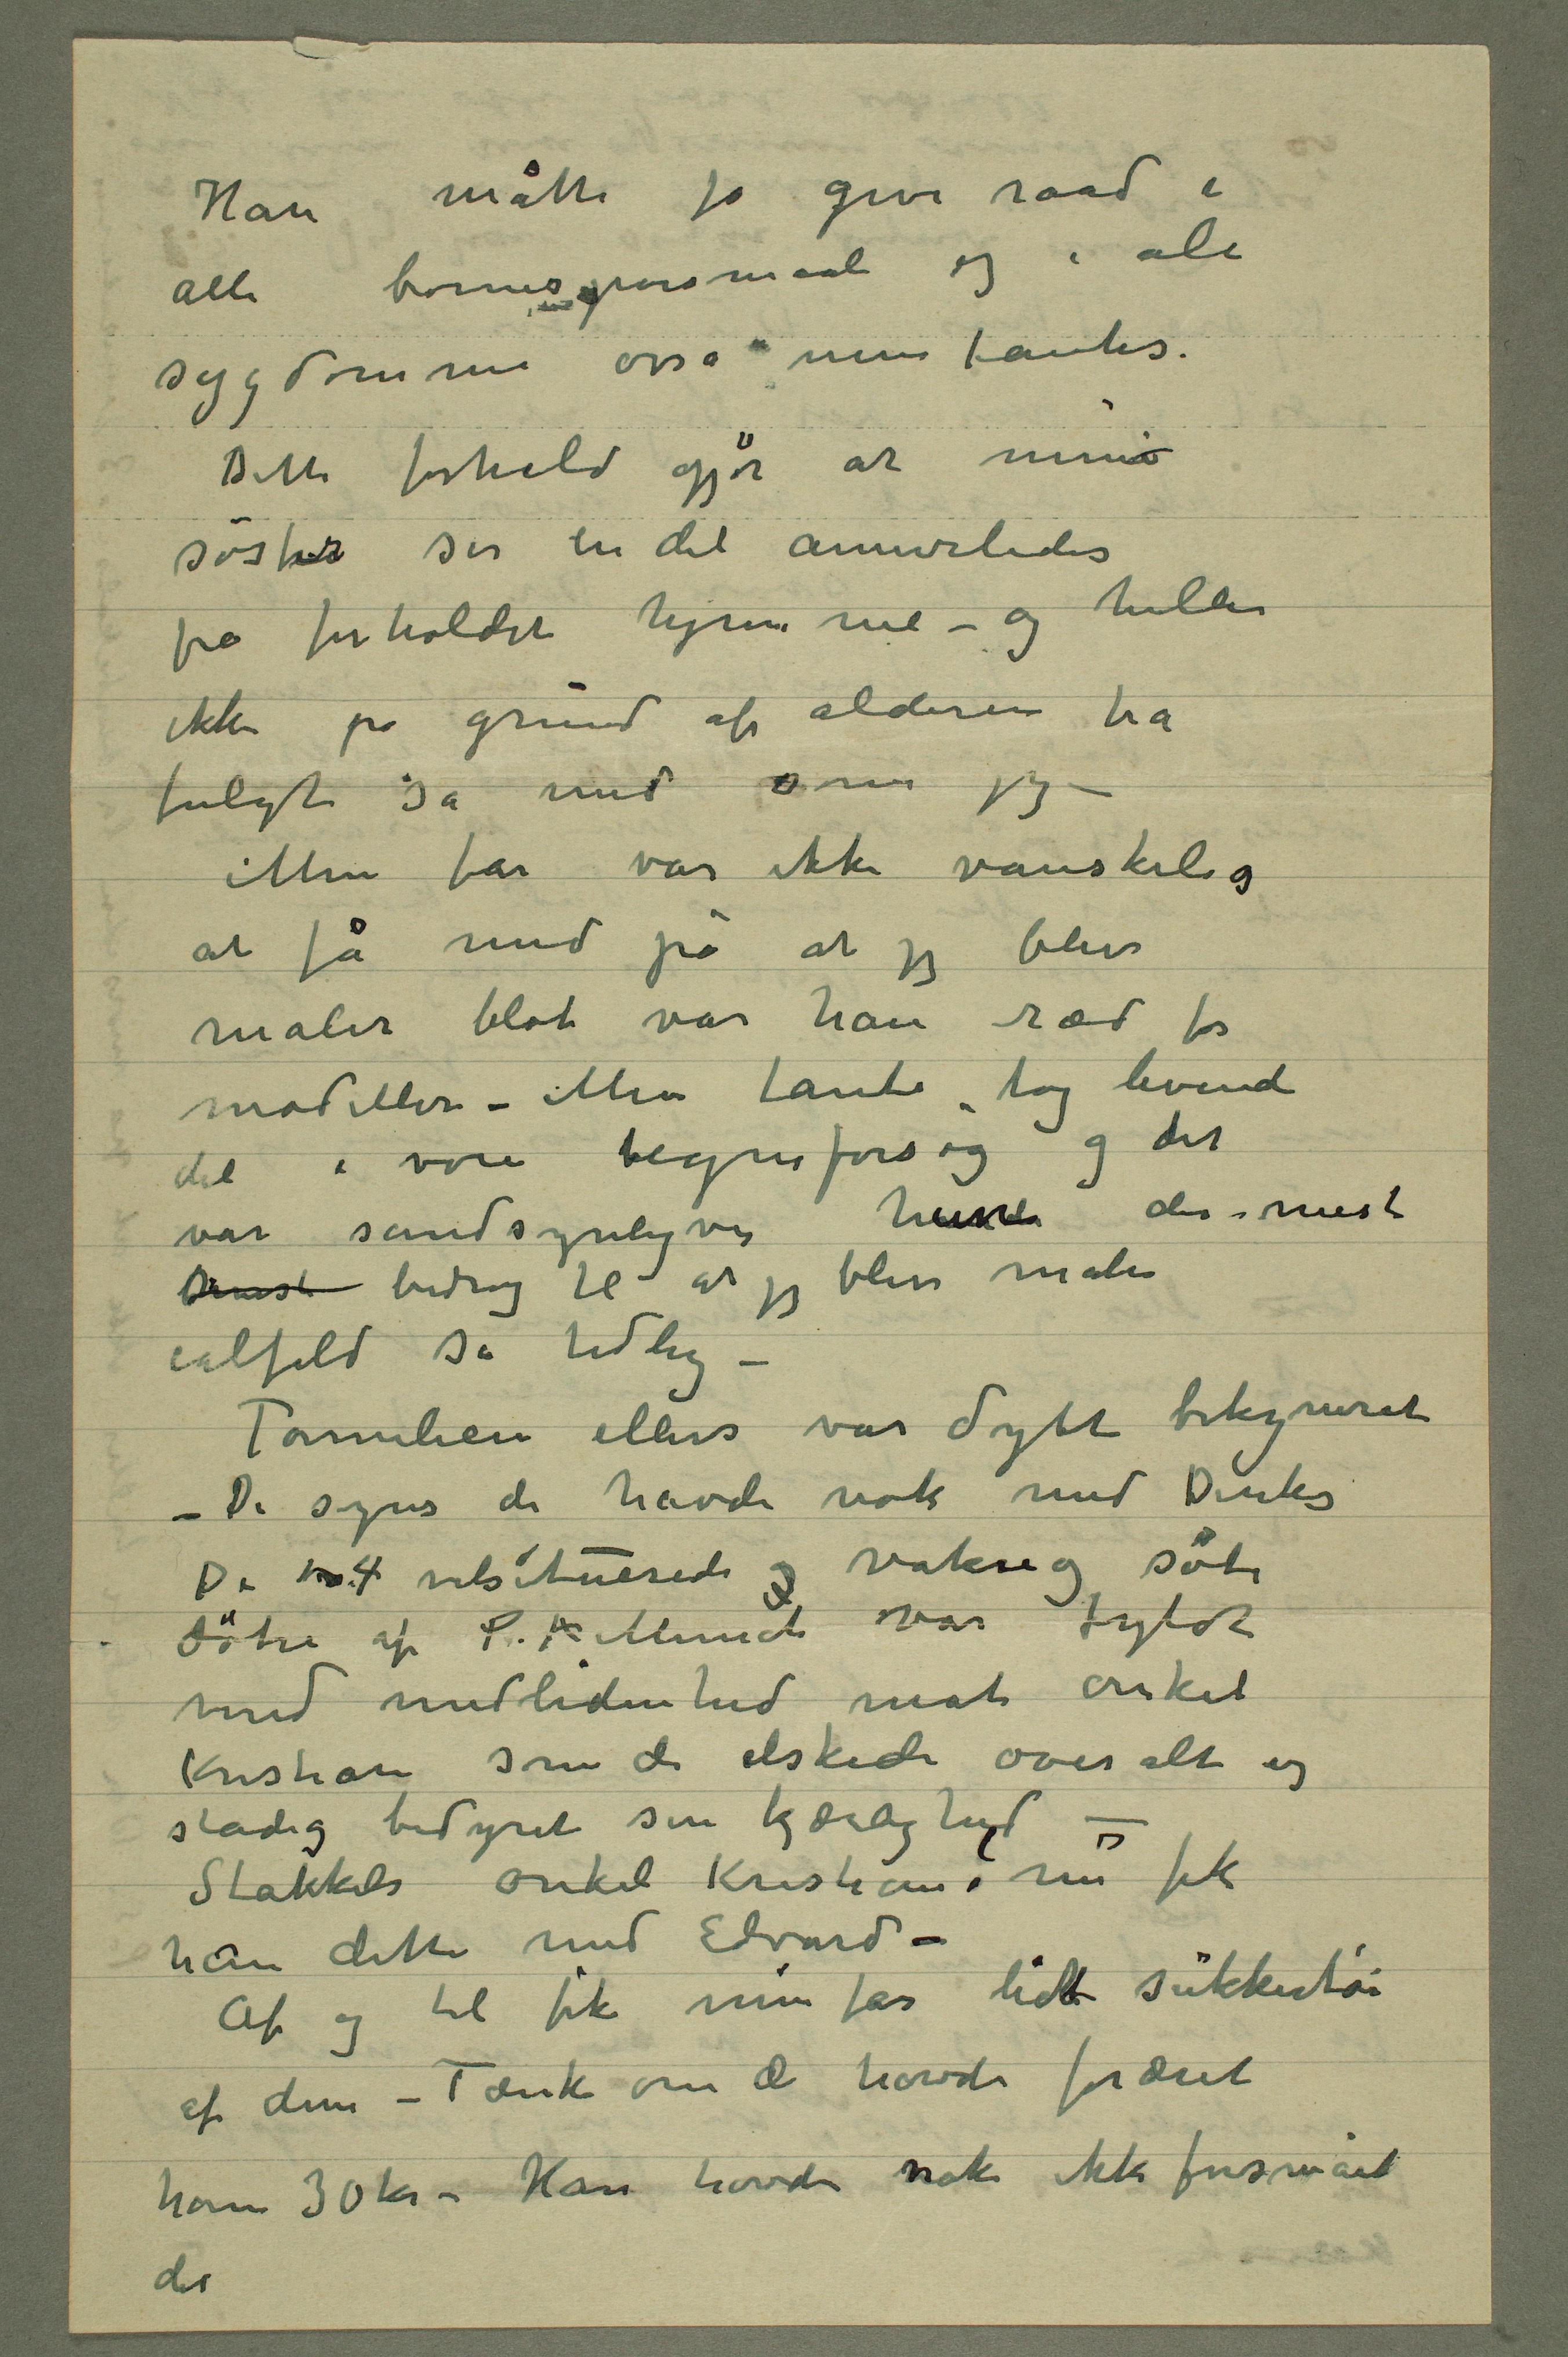 Han måtte jo give raad i
alle børnespørsmaal og i alle
sygdomme osså min tantes.
Dette forhold gjør at min
søster ser en del annerledes
fra forholdet hjemme – og heller
ikke på grund af alderen ha
fulgte så med som jeg –
Min far var ikke vanskelig
at få med på at jeg blev
maler blot var han ræd for
modeller – Min tante tog levende
del i vore tegneforsøg og det
var sandsynligvis hende der mest
bidrog til at jeg blev maler
ialfald så tidlig –
Familien ellers var dybt bekymret
– De synes de havde nok med Diriks
De 4 velsituerede og vakre og søte
døtre af P. A. Munch var fyldt
med medlidenhed mot onkel
Kristian som de elskede over alt og
stadig bedyret sin kjærlighed –
Stakkels onkel Kristian, nu fik
han dette med Edvard –
Af og til fik min far lidt sukkertøi
af dem – Tænk om de havde foræret
ham 30 kr – Han havde nok ikke forsmået
det